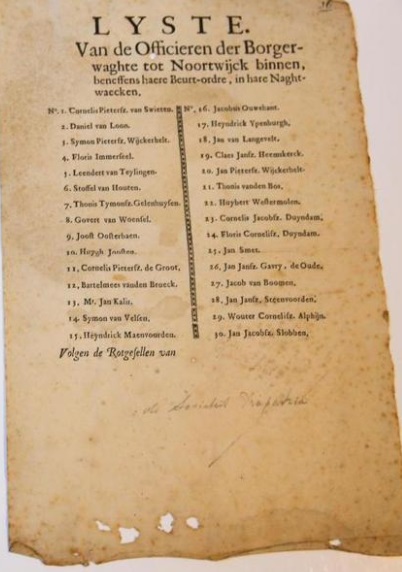 LYSTE.
Van de Officieren der Borger-
waghte tot Noortwijck binnen,
beneffens haere Beurt-ordre, in hare Naght-
waecken,
No. 1. Cornelis Pietersz. van Swieten.
2. Daniel van Loon.
3. Symon Pietersz. Wijckerbelt.
4. Floris Immerseel.
5. Leendert van Teylingen.
6. Stoffel van Houten.
7. Thonis Tymonsz. Gelenhuysen.
8. Govert van Woensel.
9. Joost Oosterhaen.
10. Huygh Joosten.
11, Cornelis Pietersz. de Groot,
12, Bartelmees vanden Broeck.
13, Mr. Jan Kalis,
14. Symon van Velsen,
15. Heyndrick Maenvoorden.
No, 16. Jacobus Ouwehant.
17. Heyndrick Ypenburgh,
18. Jan van Langevelt,
19. Claes Jansz. Heemskerck.
20. Jan Pietersz. Wijckerbelt.
21. Thonis vanden Bos,
22. Huybert Westermolen.
23. Cornelis Jacobsz. Duyndam,
24. Floris Cornelisz. Duyndam.
25. Jan Smes.
26, Jan Jansz. Garry, de Oude,
27. Jacob van Boomen,
28, Jan Jansz. Steenvoorden,
29. Wouter Cornelisz. Alphijn.
30. Jan Jacobsz. Slobben,
Volgen de Rotgesellen van
de